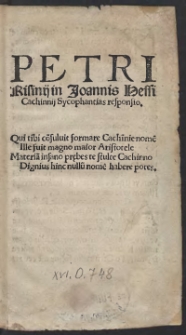 PETRI
Risinij in Joannis Hessi
Cachinnij Sycophantias responsio.
Qui tibi cōsuluit formare Cachinie nomē
Ille fuit magno maior Aristotele
Materiā insano prębes te stulte Cachinno
Dignius hinc nullū nomē habere potes.
XVI.O.748